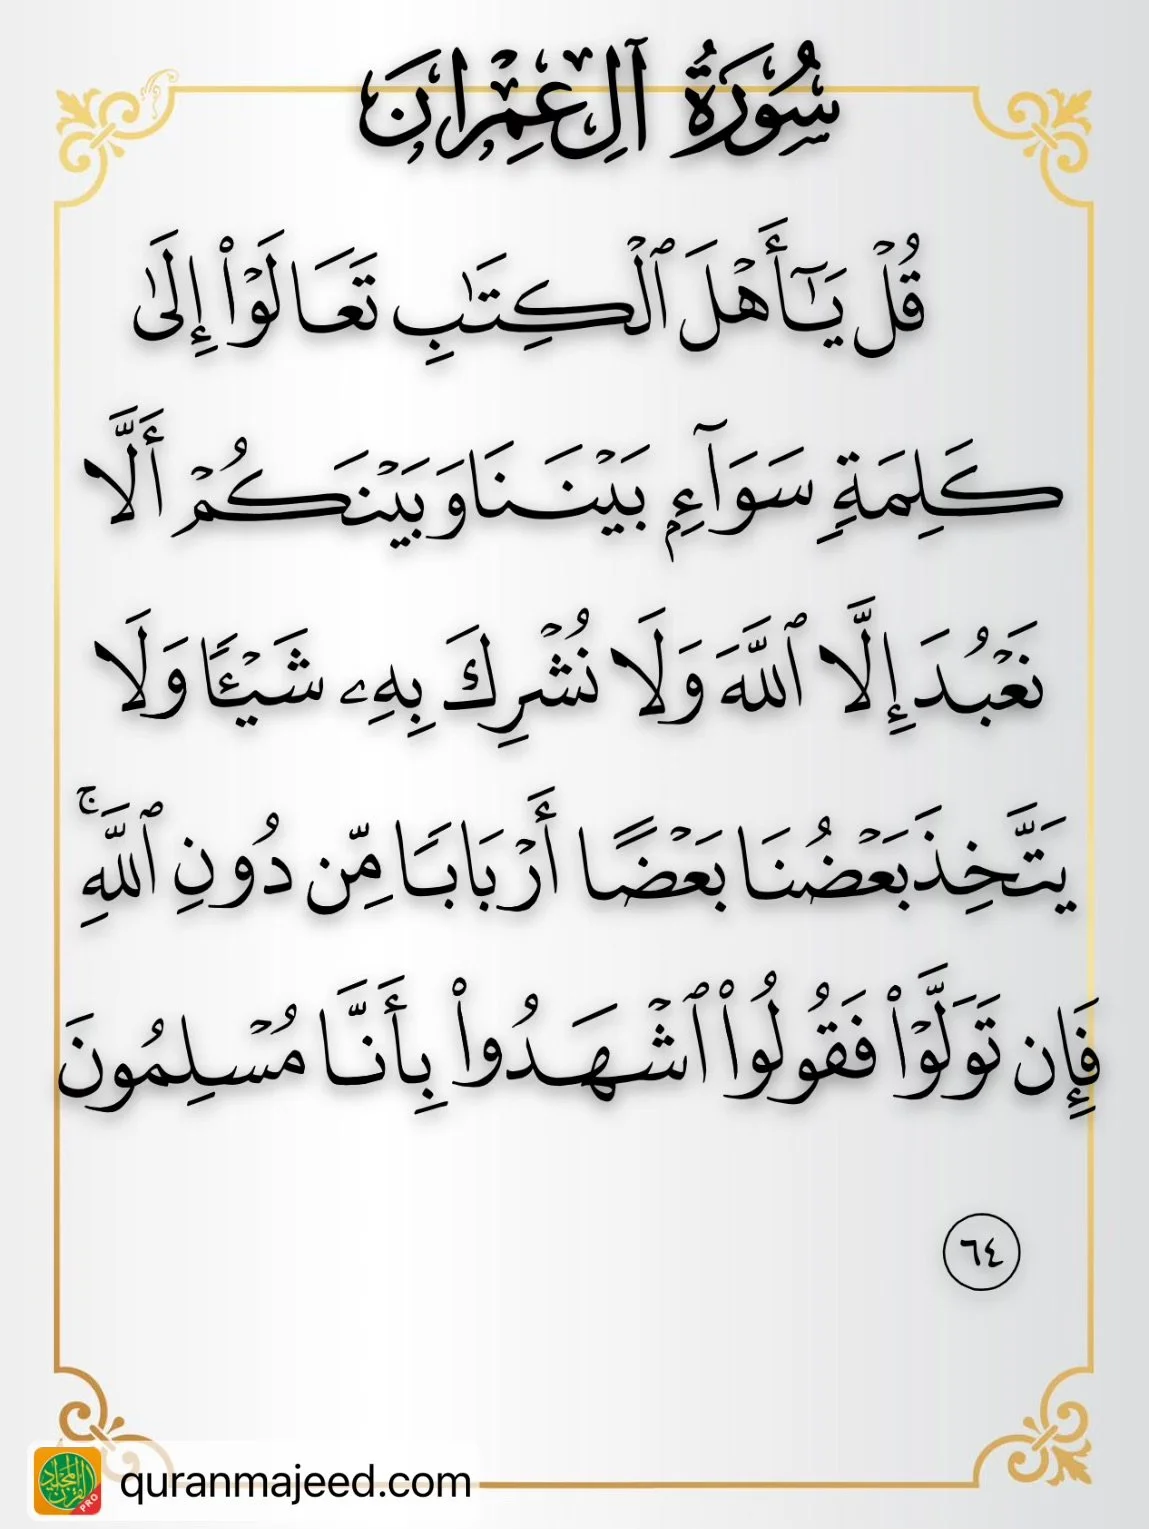 سُورَةُ آلِ عِمْرَانَ
قُلْ يَـٰٓأَهْلَ ٱلْكِتَـٰبِ تَعَالَوْا۟ إِلَىٰ
كَلِمَةٍ سَوَآءِۭ بَيْنَنَا وَبَيْنَكُمْ أَلَّا
نَعْبُدَ إِلَّا ٱللَّهَ وَلَا نُشْرِكَ بِهِۦ شَيْـًٔا وَلَا
يَتَّخِذَ بَعْضُنَا بَعْضًا أَرْبَابًا مِّن دُونِ ٱللَّهِ ۚ
فَإِن تَوَلَّوْا۟ فَقُولُوا۟ ٱشْهَدُوا۟ بِأَنَّا مُسْلِمُونَ
٦٤
quranmajeed.com